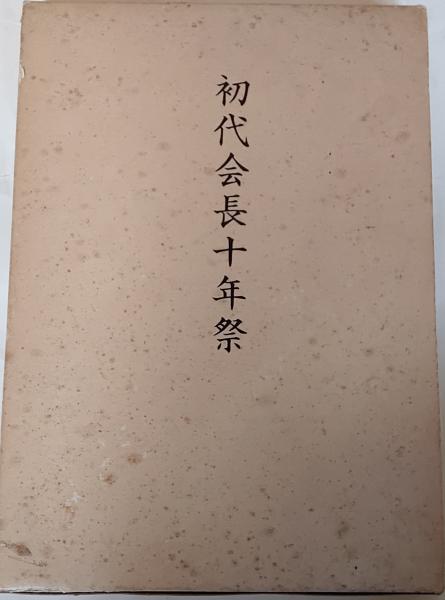 初代会長十年祭